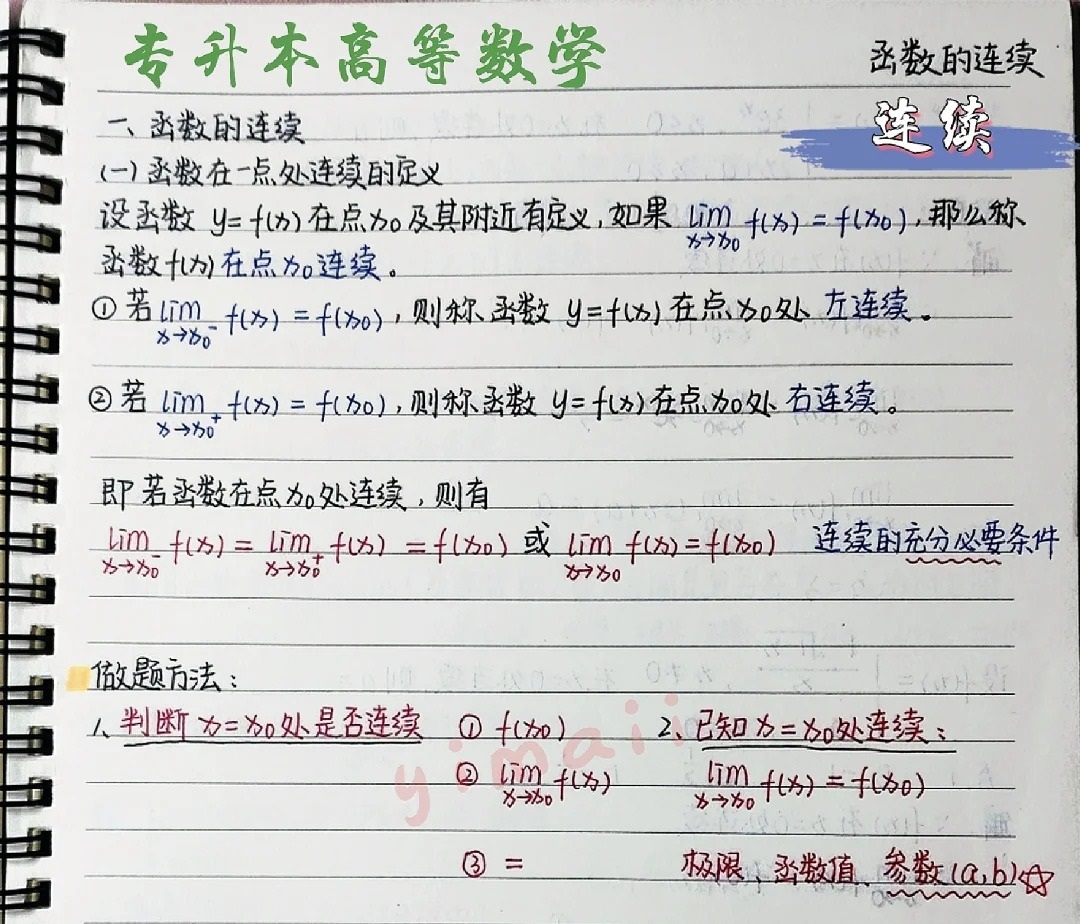 专升本高等数学
函数的连续
连续
一、函数的连续
(一)函数在一点处连续的定义
设函数 y=f(x)在点x₀及其附近有定义,如果 lim x→x₀ f(x)=f(x₀),那么称
函数f(x)在点x₀连续。
①若 lim x→x₀⁻ f(x)=f(x₀),则称函数 y=f(x)在点x₀处 左连续。
②若 lim x→x₀⁺ f(x)=f(x₀),则称函数 y=f(x)在点x₀处 右连续。
即若函数在点x₀处连续,则有
lim x→x₀⁻ f(x)=lim x→x₀⁺ f(x)=f(x₀) 或 lim x→x₀ f(x)=f(x₀) 连续的充分必要条件
做题方法:
1、判断x=x₀处是否连续 ① f(x₀) 2、已知x=x₀处连续:
② lim x→x₀ f(x) lim x→x₀ f(x)=f(x₀)
③ = 极限、函数值、参数(a,b)☆
yimaii